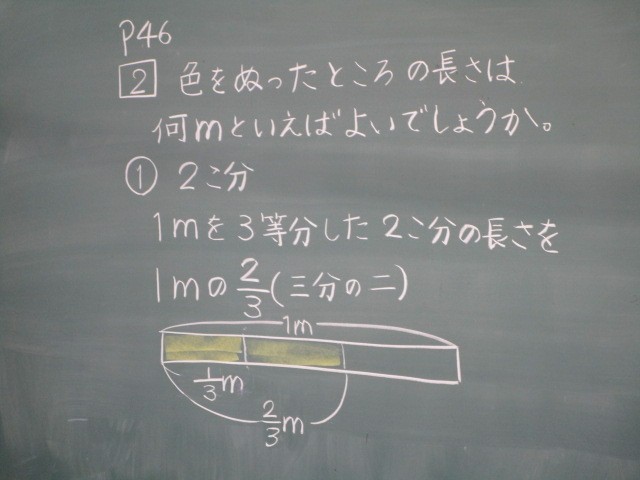 P46
2 色をぬったところの長さは
何mといえばよいでしょうか。
① 2こ分
1mを3等分した2こ分の長さを
1mの2/3(三分の二)
1m
1/3m
2/3m